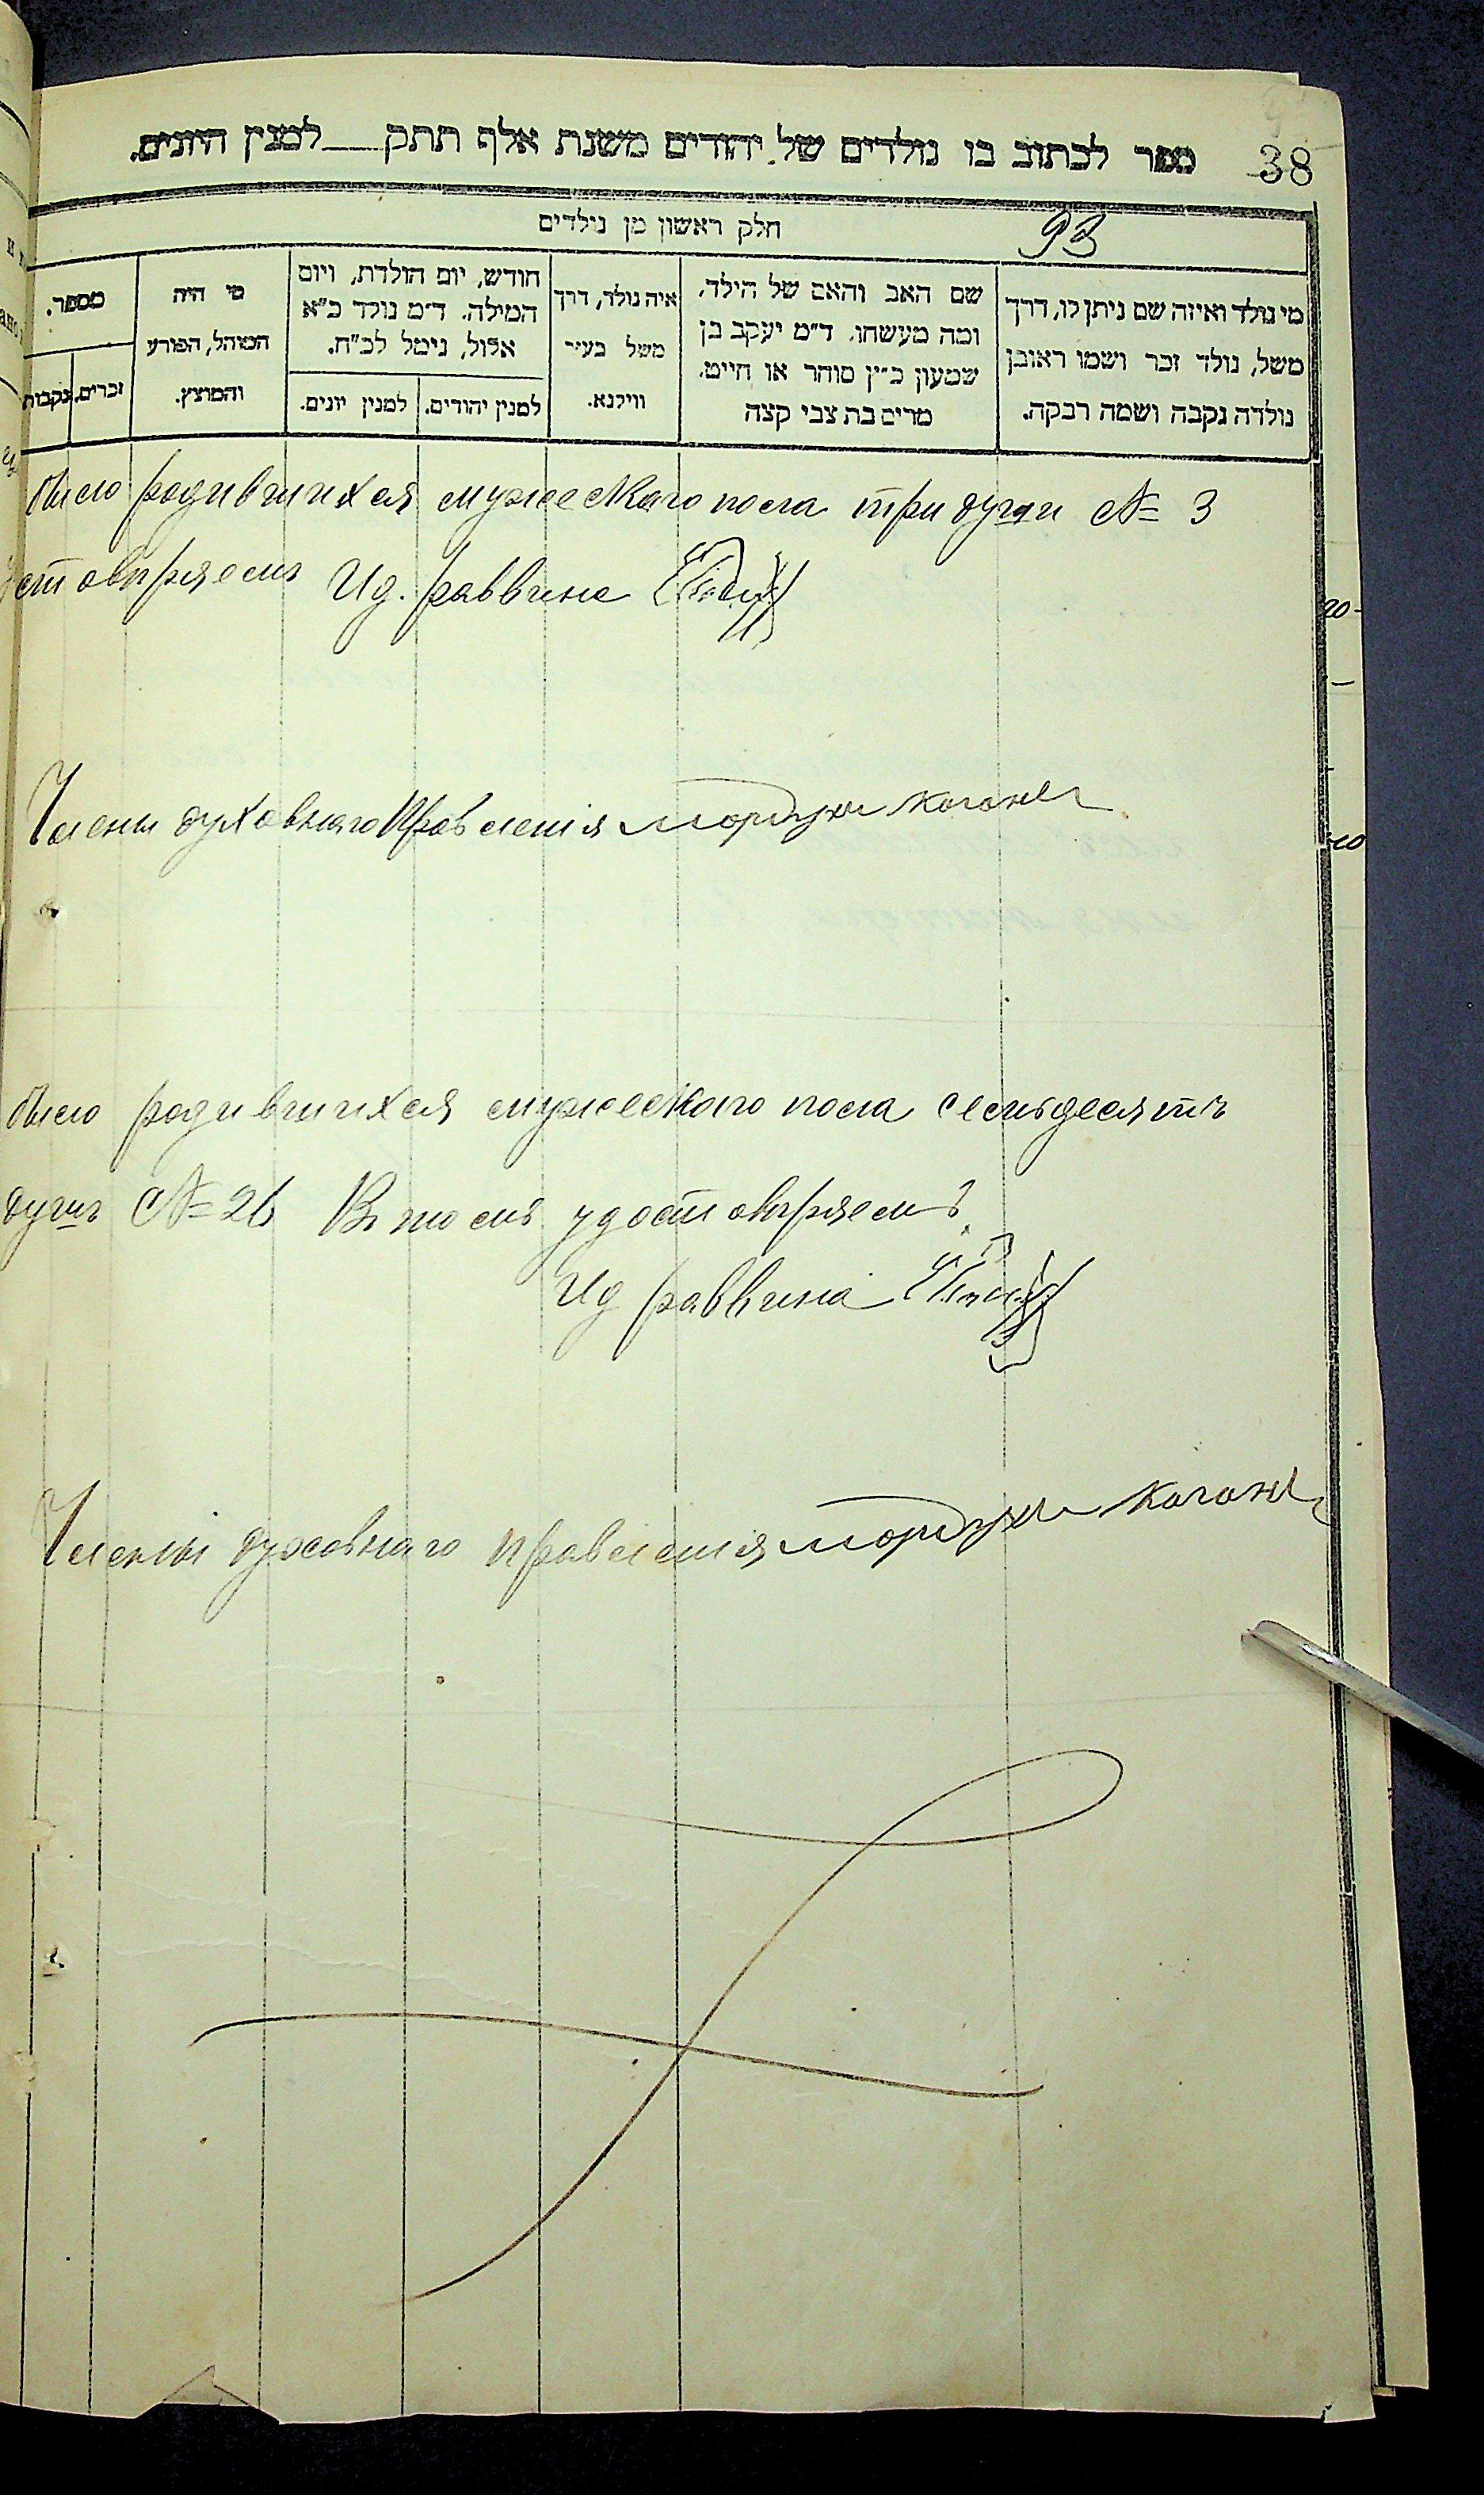 38
ספר לכתוב בו נולדים של יהודים משנת אלף תתק — למנין היונים.
93
חלק ראשון מן נולדים
מי נולד ואיזה שם ניתן לו, דרך
משל, נולד זכר ושמו ראובן
נולדה נקבה ושמה רבקה.
שם האב והאם של הילד,
ומה מעשהו. ד״מ יעקב בן
שמעון כ״ץ סוחר או חייט.
מרים בת צבי קצה
איה נולד, דרך
משל בעיר
ווילנא.
חודש, יום הולדת, ויום
המילה. ד״מ נולד כ״א
אלול, נימל לכ״ח.
למנין יהודים.
למנין יונים.
מי היה
המוהל, הפורע
והמוצץ.
מספר.
זכרים.
נקבות
было родившихся мужескаго пола три души № 3
стовѣряемъ Ид. раввина
Члены духовнаго Правленія Мордухъ Коганъ
было родившихся мужескаго пола семьдесятъ
душъ № 26 Въ томъ удостовѣряемъ
Ид раввина
Члены духовнаго правленія Мордухъ Коганъ